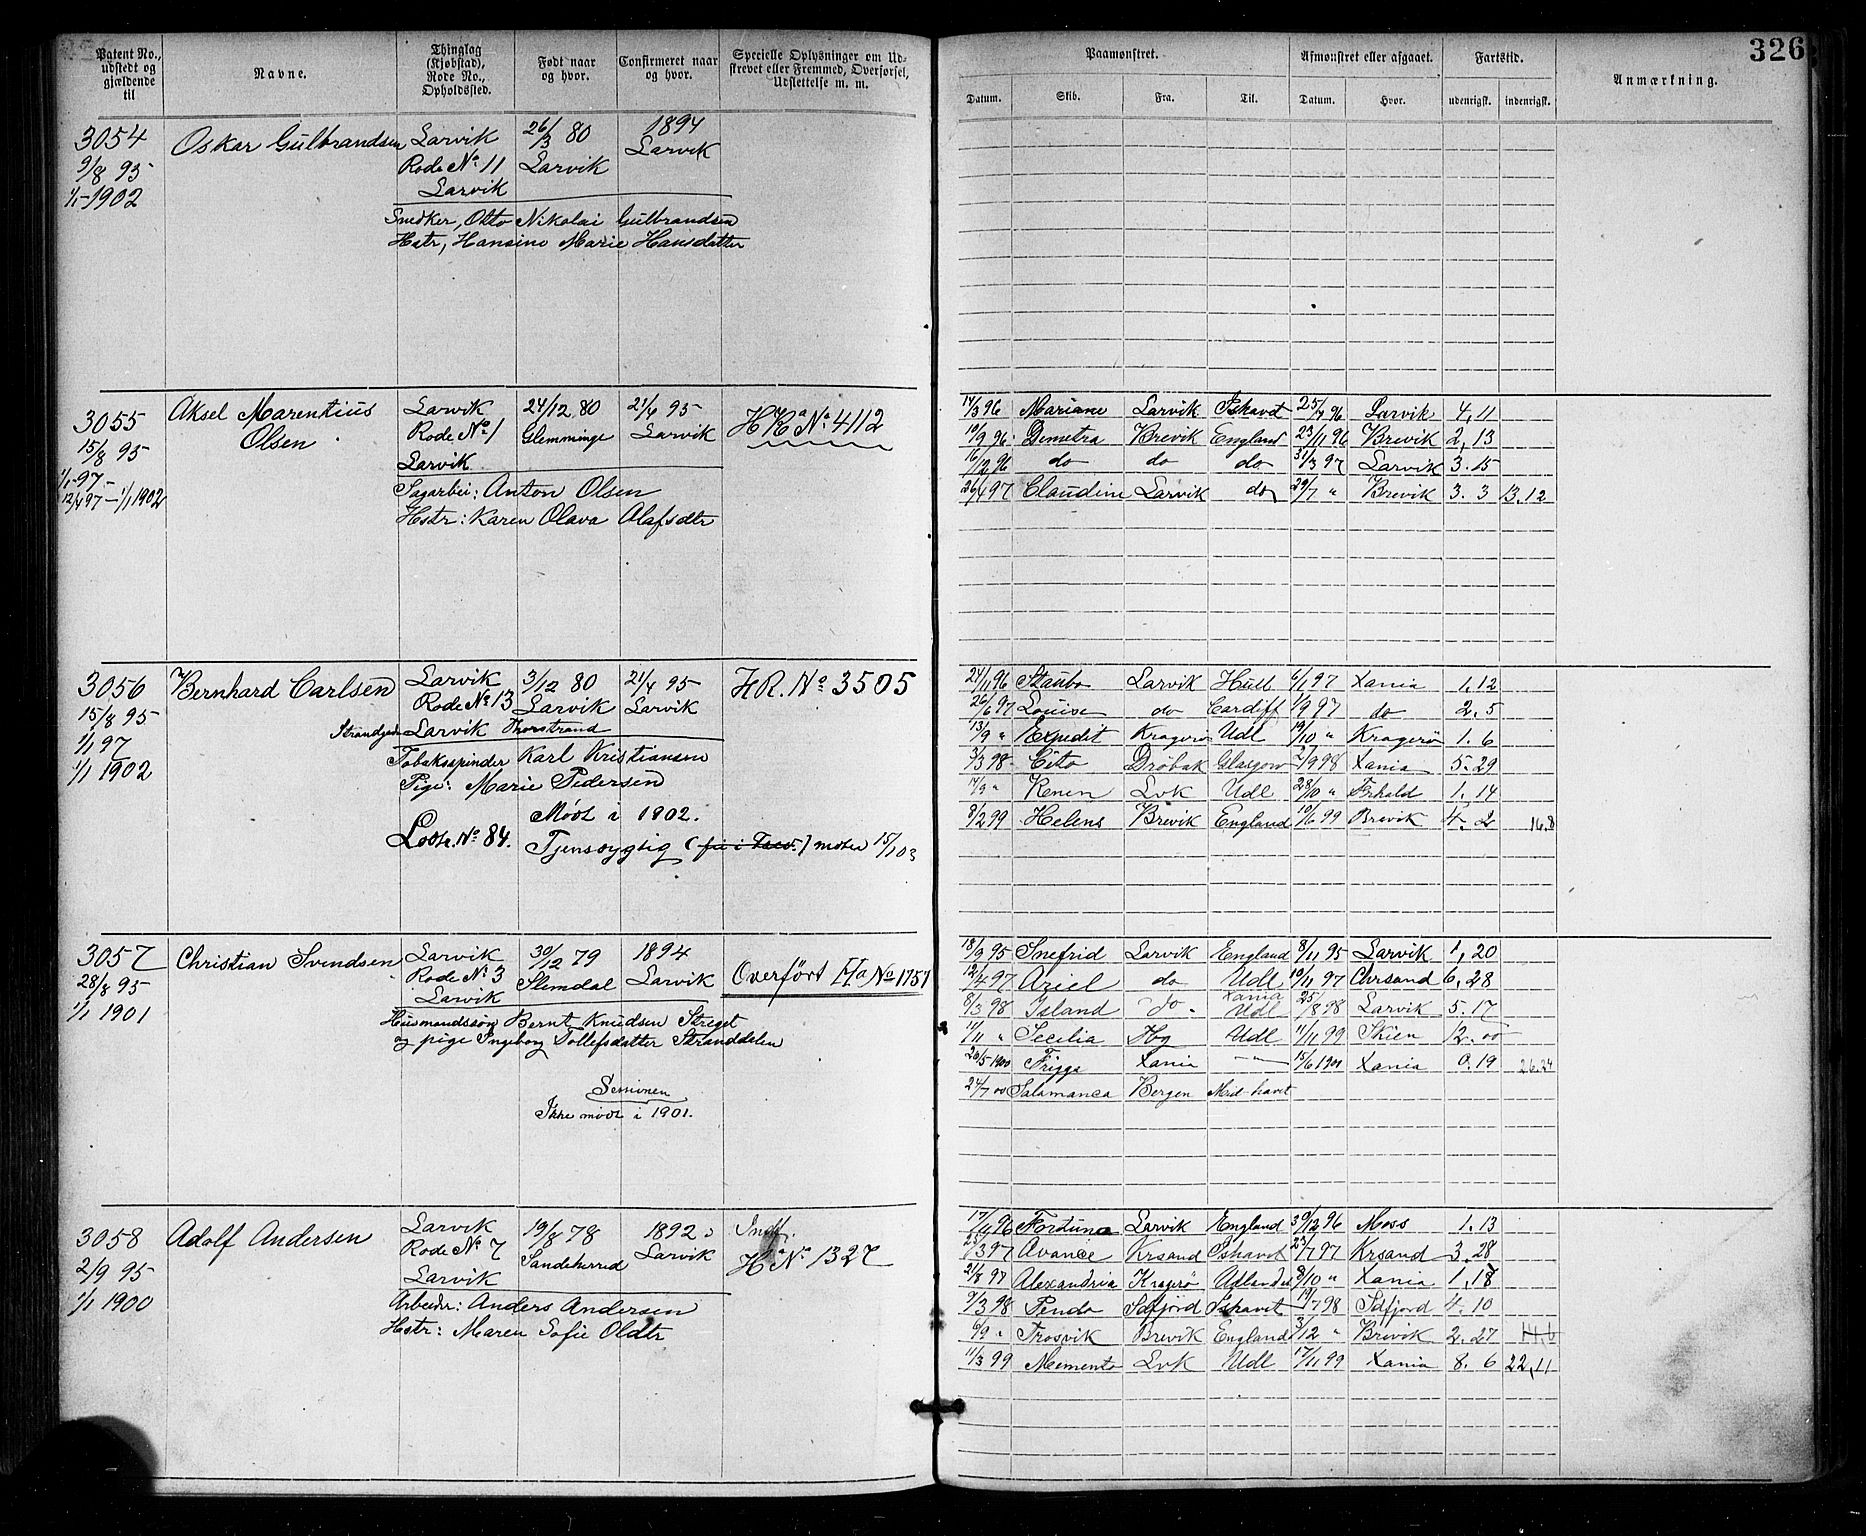 Patent No., udstedt og gjældende til | Navne. | Thinglag (Kjøbstad), Rode No., Opholdssted. | Født naar og hvor. | Confirmeret naar og hvor. | Specielle Oplysninger om Udskrevet eller Fremmed, Overførsel, Udslettelse m. m.
Paamønstret. | Afmønstret eller afgaaet. | Fartstid. | Anmærkning. | 326
Datum. | Skib. | Fra. | Til. | Datum. | Hvor. | udenrigsk. | indenrigsk.
3054 | Oskar Gulbrandsen | Larvik | 26/3 80 | 1894
9/8 95 | Rode No 11 | Larvik | Larvik
1/1-1902 | Larvik
Snedker, Otto Nikolai Gulbrandsen
Hstr, Hansine Marie Hansdatter
3055 | Aksel Marentius | Larvik | 24/12 80 | 21/4 95 | No 4112
15/8 95 | Olsen | Rode No 1 | Glemminge | Larvik
1/1-97- | Larvik
12/4 97-1/1 1902
Sagarbei: Anton Olsen
Hstr: Karen Olava Olafsdtr
17/3 96 | Mariane | Larvik | Ishavet | 25/9 96 | Larvik | 4,11
10/9 96 | Demetra | Brevik | England | 23/11 96 | Brevik | 2,13
16/12 96 | do | do | do | 31/3 97 | Larvik | 3.15
26/4 97 | Claudine | Larvik | do | 29/7 " | Brevik | 3. 3 | 13.12
3056 | Bernhard Carlsen | Larvik | 3/12 80 | 21/4 95 | HR. No 3505
15/8 95 | Rode No 13 | Larvik | Larvik
1/1 97 | Larvik Thorstrand
1/1 1902
Tobaksspinder Karl Kristiansen
Pige: Marie Pedersen
Mødt i 1902.
No 84. Tjensdygtig ( ) 15/1 03
24/11 96 | Staubo | Larvik | Hull | 6/1 97 | Xania | 1.12
26/6 97 | Louise | do | Cardiff | 1/9 97 | do | 2.5
13/9 " | Expedit | Kragerø | Udl | 19/10 " | Kragerø | 1.6
3/3 98 | Cito | Drøbak | Glasgow | 2/9 98 | Xania | 5.29
17/9 " | Lvk | Udl | 28/10 " | Frhald | 1.14
8/2 99 | Helens | Brevik | England | 10/6 99 | Brevik | 4. 2 | 16.8
3057 | Christian Svendsen | Larvik | 30/12 79 | 1894 | Overført No 1751
28/8 95 | Rode No 3 | Slemdal | Larvik
1/1 1901 | Larvik
Husmandssøn Bernt Knudsen
og pige Ingeborg Tollefsdatter Stranddalen
Sessionen
Ikke mødt i 1901.
18/9 95 | Snefrid | Larvik | England | 8/11 95 | Larvik | 1,20
12/4 97 | Ariel | do | Udl | 10/11 97 | Chrsand | 6,28
8/3 98 | Island | do | Xania Udl | 25/8 98 | Larvik | 5.17
11/11 " | Secilia | Hbg | Udl | 11/11 99 | Skien | 12.00
26/5 1900 | Frigga | Xania | " | 15/6 1900 | Xania | 0.19 | 26.24
24/7 00 | Salamanca | Bergen | Mid-havet
3058 | Adolf Andersen | Larvik | 19/8 78 | 1892 | Indf.
2/9 95 | Rode No 7 | Sandeherred | Larvik | No 1327
1/1 1900 | Larvik
Arbeider: Anders Andersen
Hstr: Maren Sofie Oldtr
17/11 96 | Fortuna | Larvik | England | 30/12 96 | Moss | 1.13
25/3 97 | Avance | Krsand | Ishavet | 23/7 97 | Krsand | 3.28
21/8 97 | Alexandria | Kragerø | Udlandet | 9/10 " | Xania | 1,18
9/3 98 | Pendo | Sdfjord | Ishavet | 19/7 98 | Sdfjord | 4.10
6/9 " | Trosvik | Brevik | England | 3/12 " | Brevik | 2.27
11/3 99 | Memento | Lvk | Udl | 17/11 99 | Xania | 8. 6 | 22,11